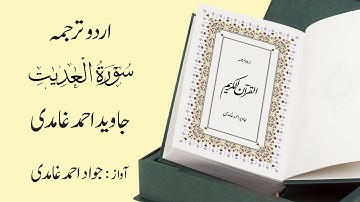 اردو ترجمہ
سُوْرَةُ الْعٰدِيٰتِ
جاوید احمد غامدی
آواز : جواد احمد غامدی
اردو ترجمہ
القرآن الکریم
جاوید احمد غامدی